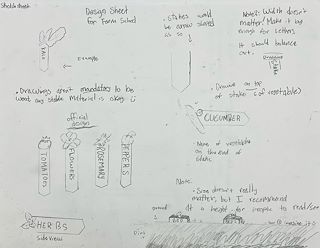 Sketch sheet
Design Sheet
For Farm School
KALE
Example
• Stakes would
be arrow shaped
as so
Note: Width doesn't
matter! Make it big
enough for letters
It should balance
out.
• Drawings aren't mandatory to be
wood any stable material is okay :)
official
designs
TOMATOES
FLOWERS
ROSEMARY
PEPPERS
• Drawing on top
of stake (of vegetable)
CUCUMBER
• Name of vegetable
on the end of
stake.
Note:
• Size doesn't really
matter, but I recommend
at a height for people to read/see
ground
HERBS
side view
Dirt